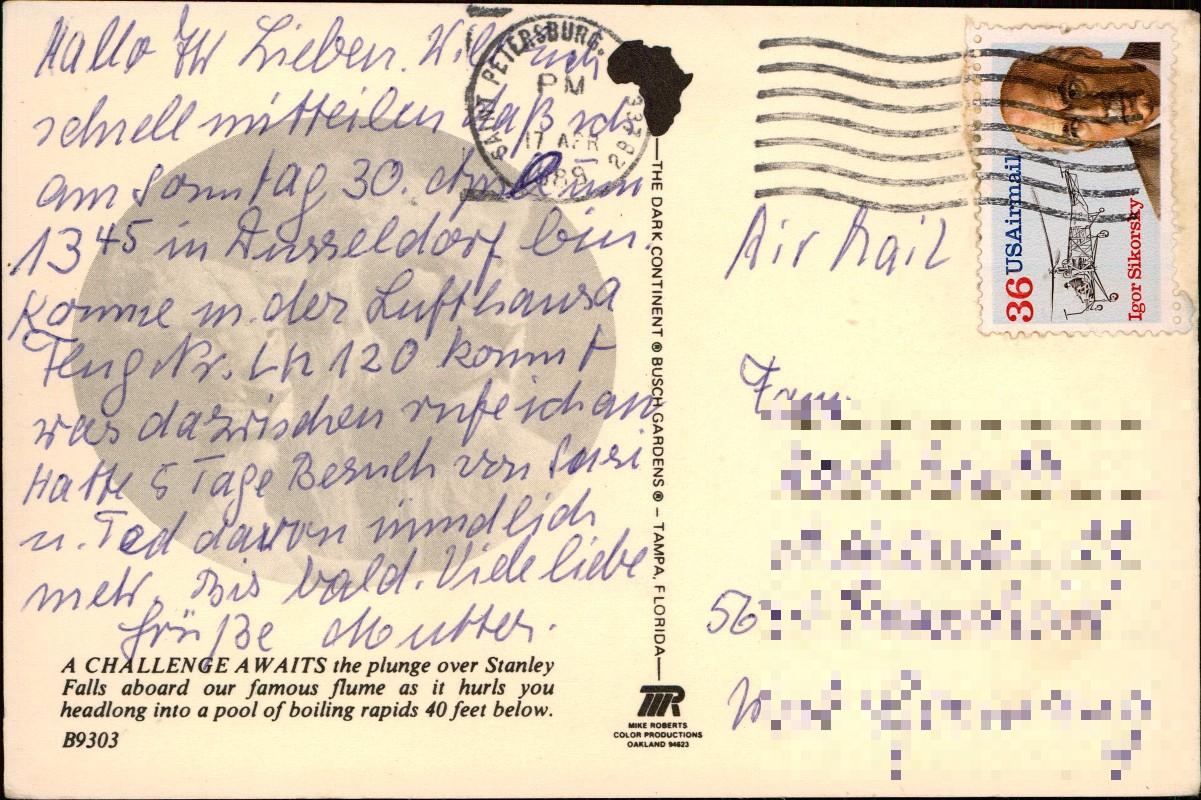 Hallo Ihr Lieben. Will euch
schnell mitteilen daß ich
am Sonntag 30. April um
13 45 in Düsseldorf bin.
Komme m. der Lufthansa
Flug Nr. LH 120 kommt
was dazwischen rufe ich an
Hatte 5 Tage Besuch von Susi
u. Ted davon mündlich
mehr. Bis bald. Viele liebe
Grüße Mutter.
A CHALLENGE AWAITS the plunge over Stanley
Falls aboard our famous flume as it hurls you
headlong into a pool of boiling rapids 40 feet below.
B9303
SAINT PETERSBURG,
PM
17 APR
THE DARK CONTINENT ® BUSCH GARDENS ® – TAMPA, FLORIDA
MIKE ROBERTS
COLOR PRODUCTIONS
OAKLAND 94623
36 USAirmail
Igor Sikorsky
Air Mail
56